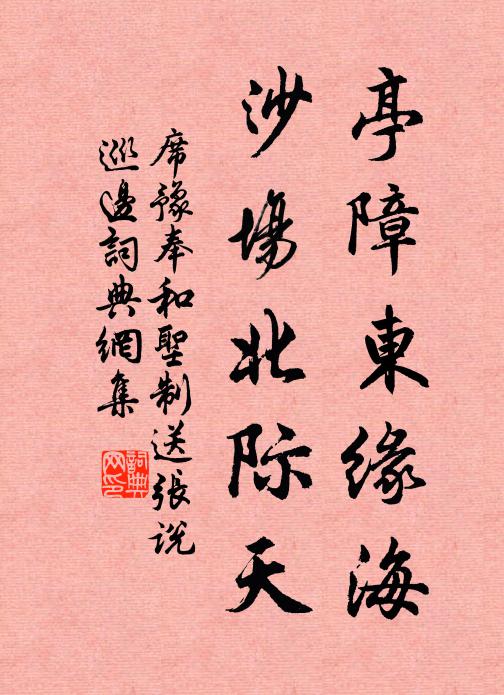 亭障東緣海
沙場北际天
席豫奉和聖制送張说
巡邊詞典網集
詞典网印